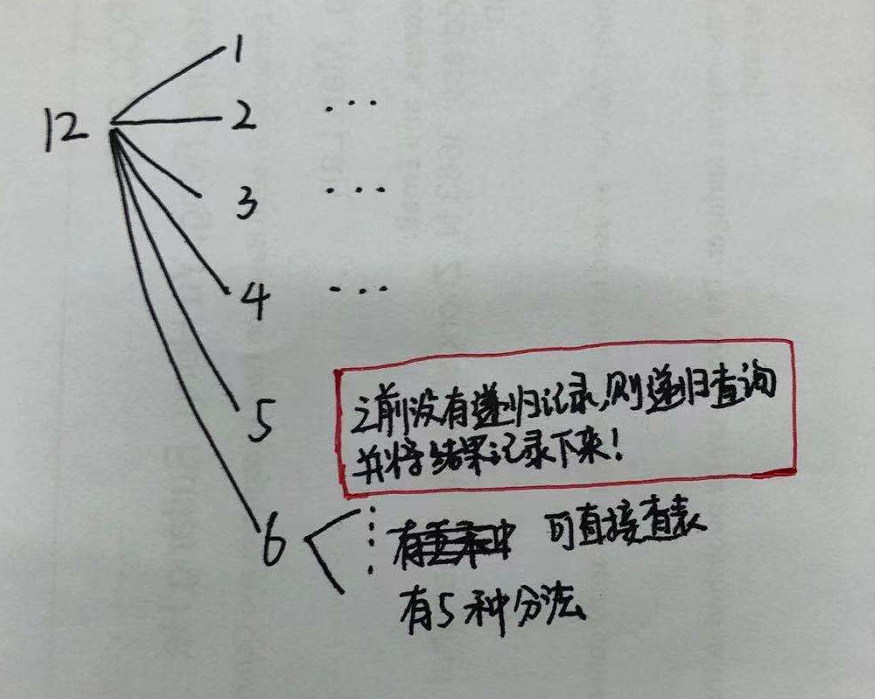 1
12
2 ...
3 ...
4 ...
5
之前没有递归记录,则递归查询
并将结果记录下来!
6
可直接查表
有5种分法